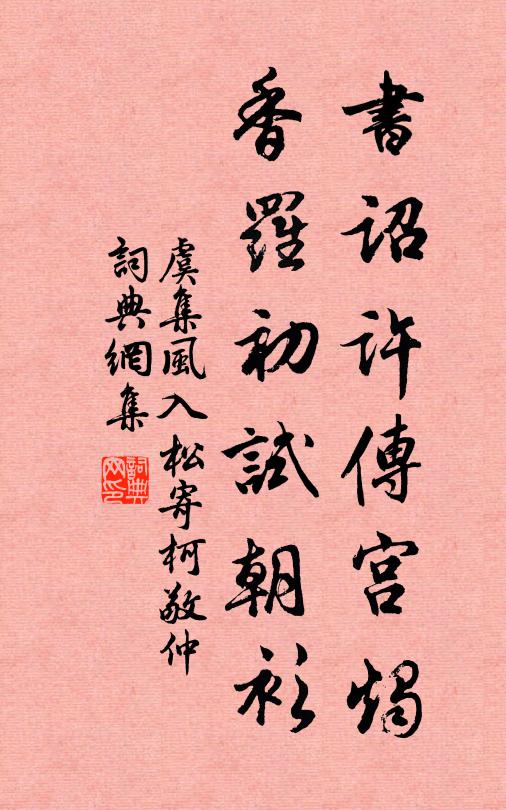 書詔許傳宮燭
香羅初試朝衫
虞集風入松寄柯敬仲
詞典網集
詞典網印